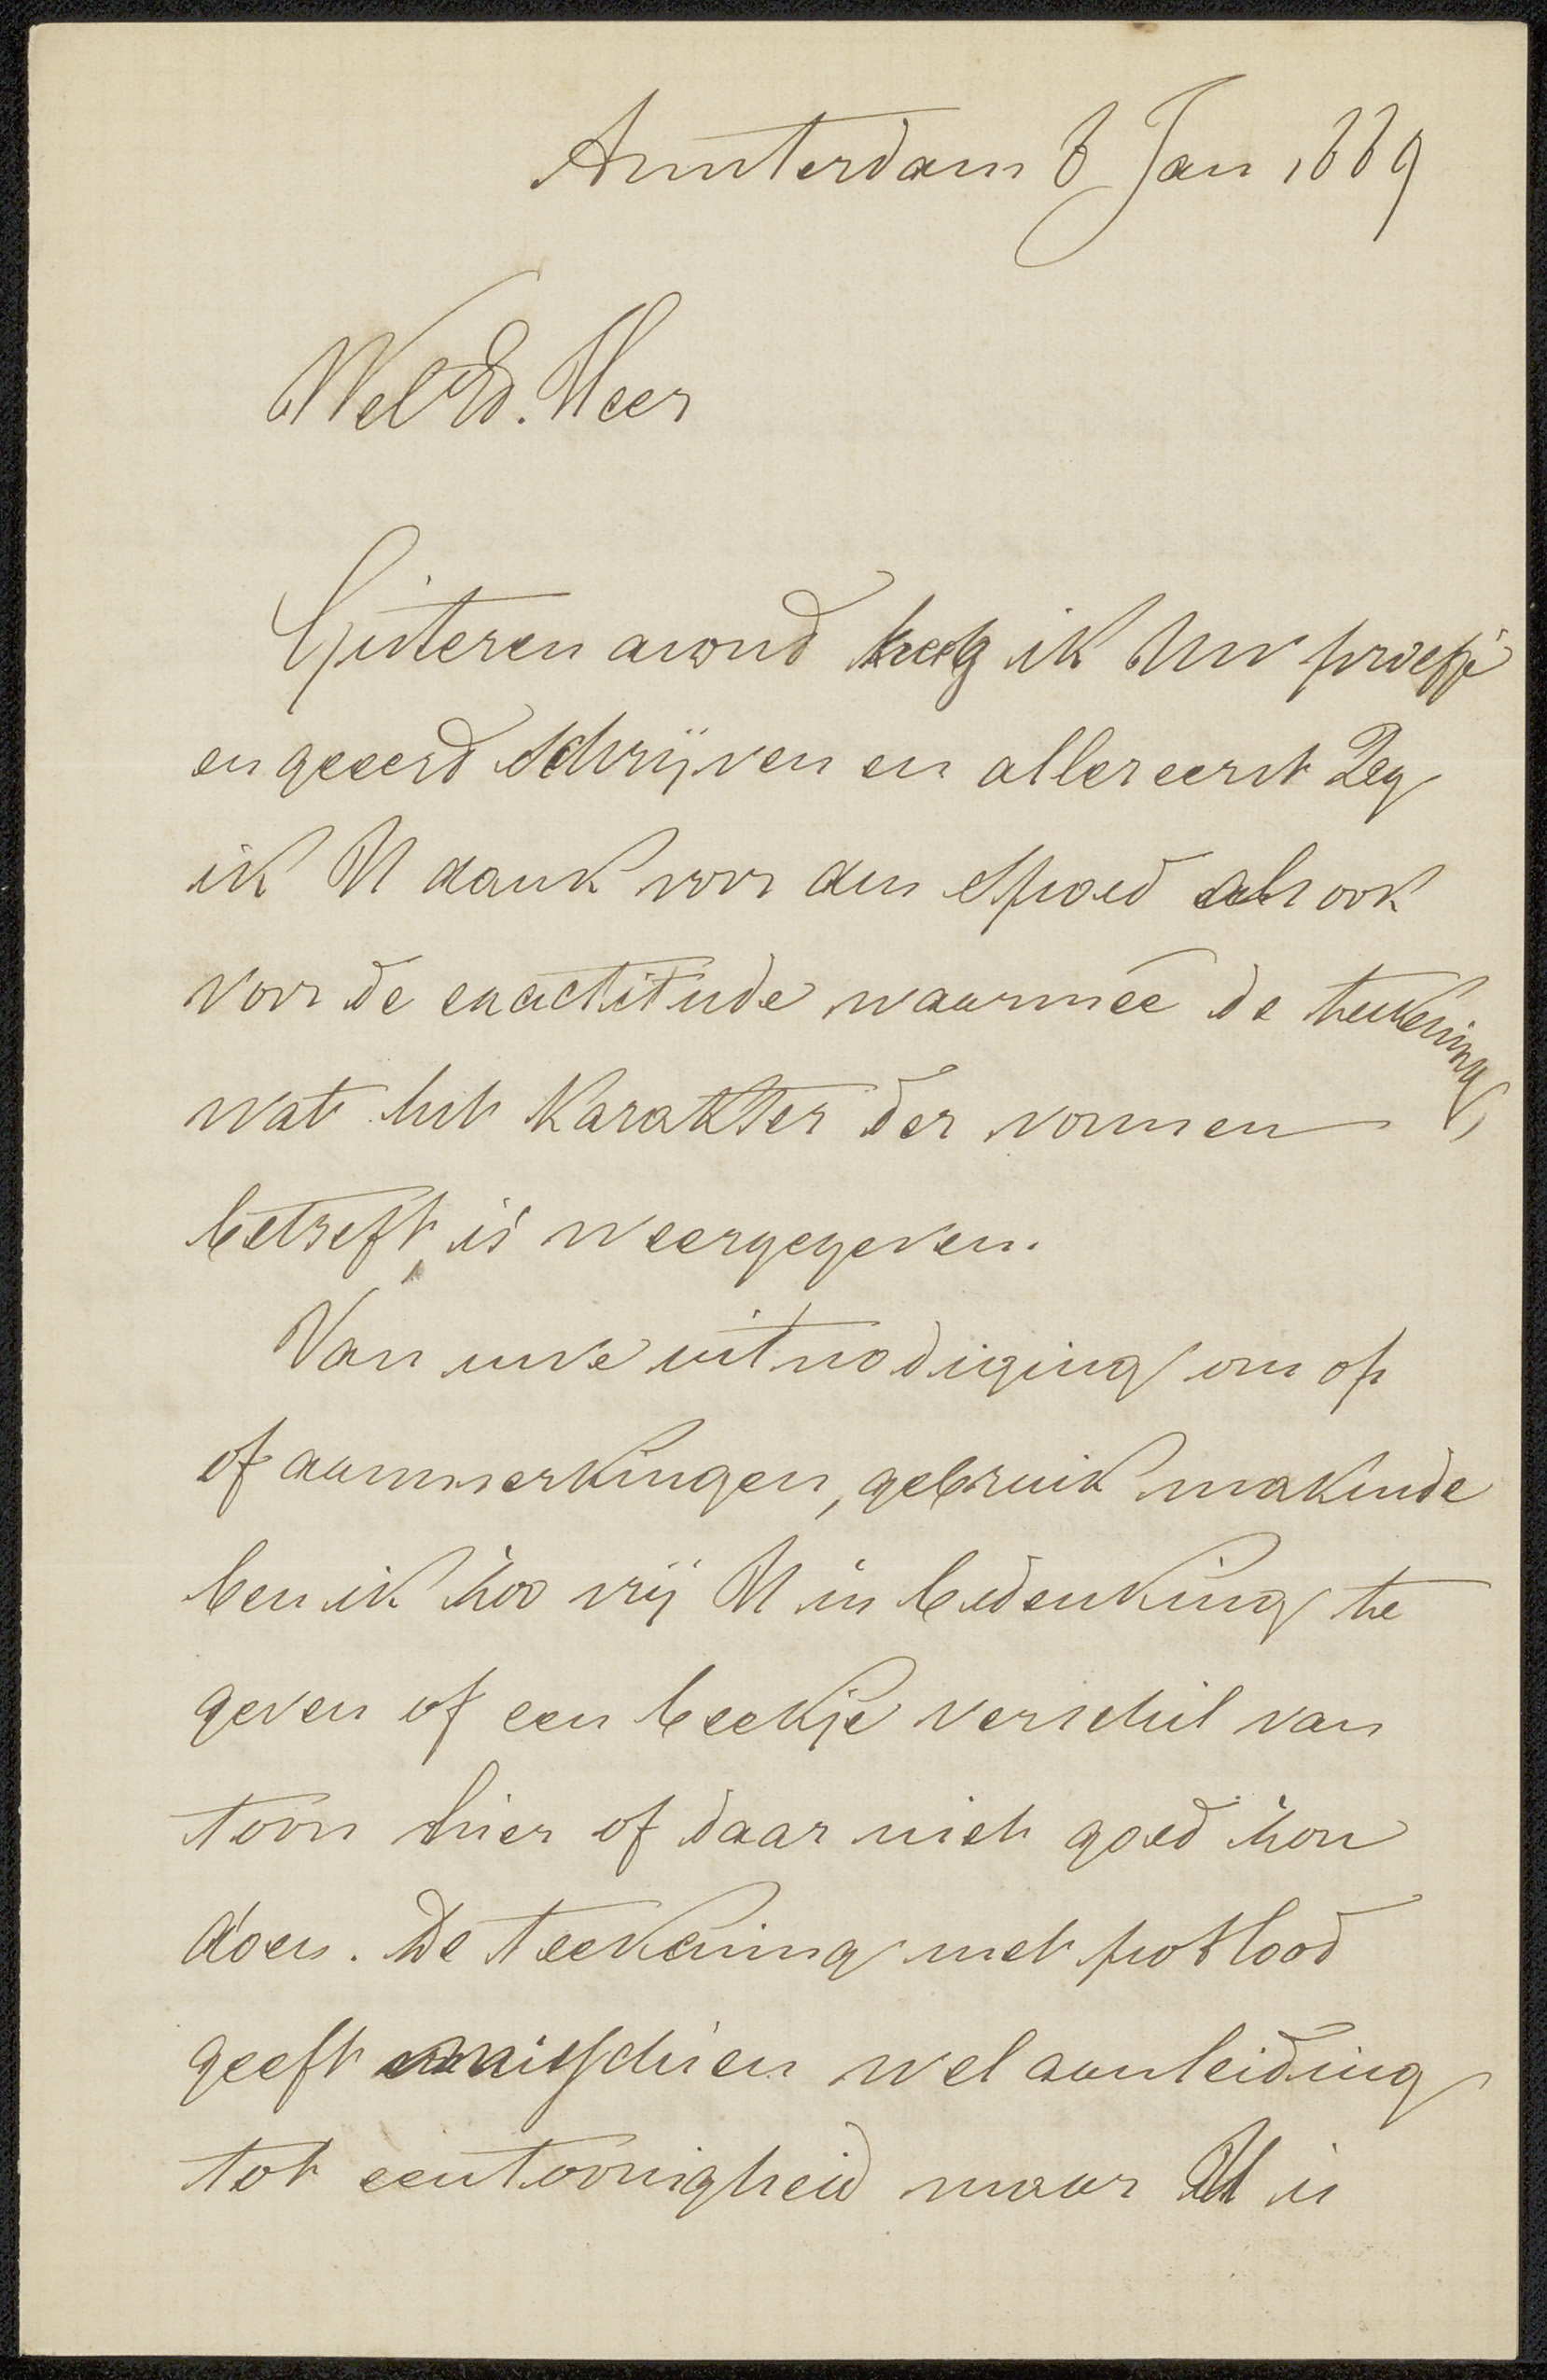 Amsterdam 8 Jan 1889
WelEd. Heer
Gisteren avond kreeg ik Uw proefje
en geeerd schrijven en allereerst Zeg
ik U dank voor den spoed als ook
voor de exactitude waarmeê de teekening,
wat het karakter der vormen
betreft, is weergegeven.
Van uwe uitnodiging om op
of aanmerkingen, gebruik makende
ben ik zoo vrij U in bedenking te
geven of een beetje verschil van
toon hier of daar niet goed zou
doen. De teekening met potlood
geeft misschien wel aanleiding
tot eentoonigheid maar U is